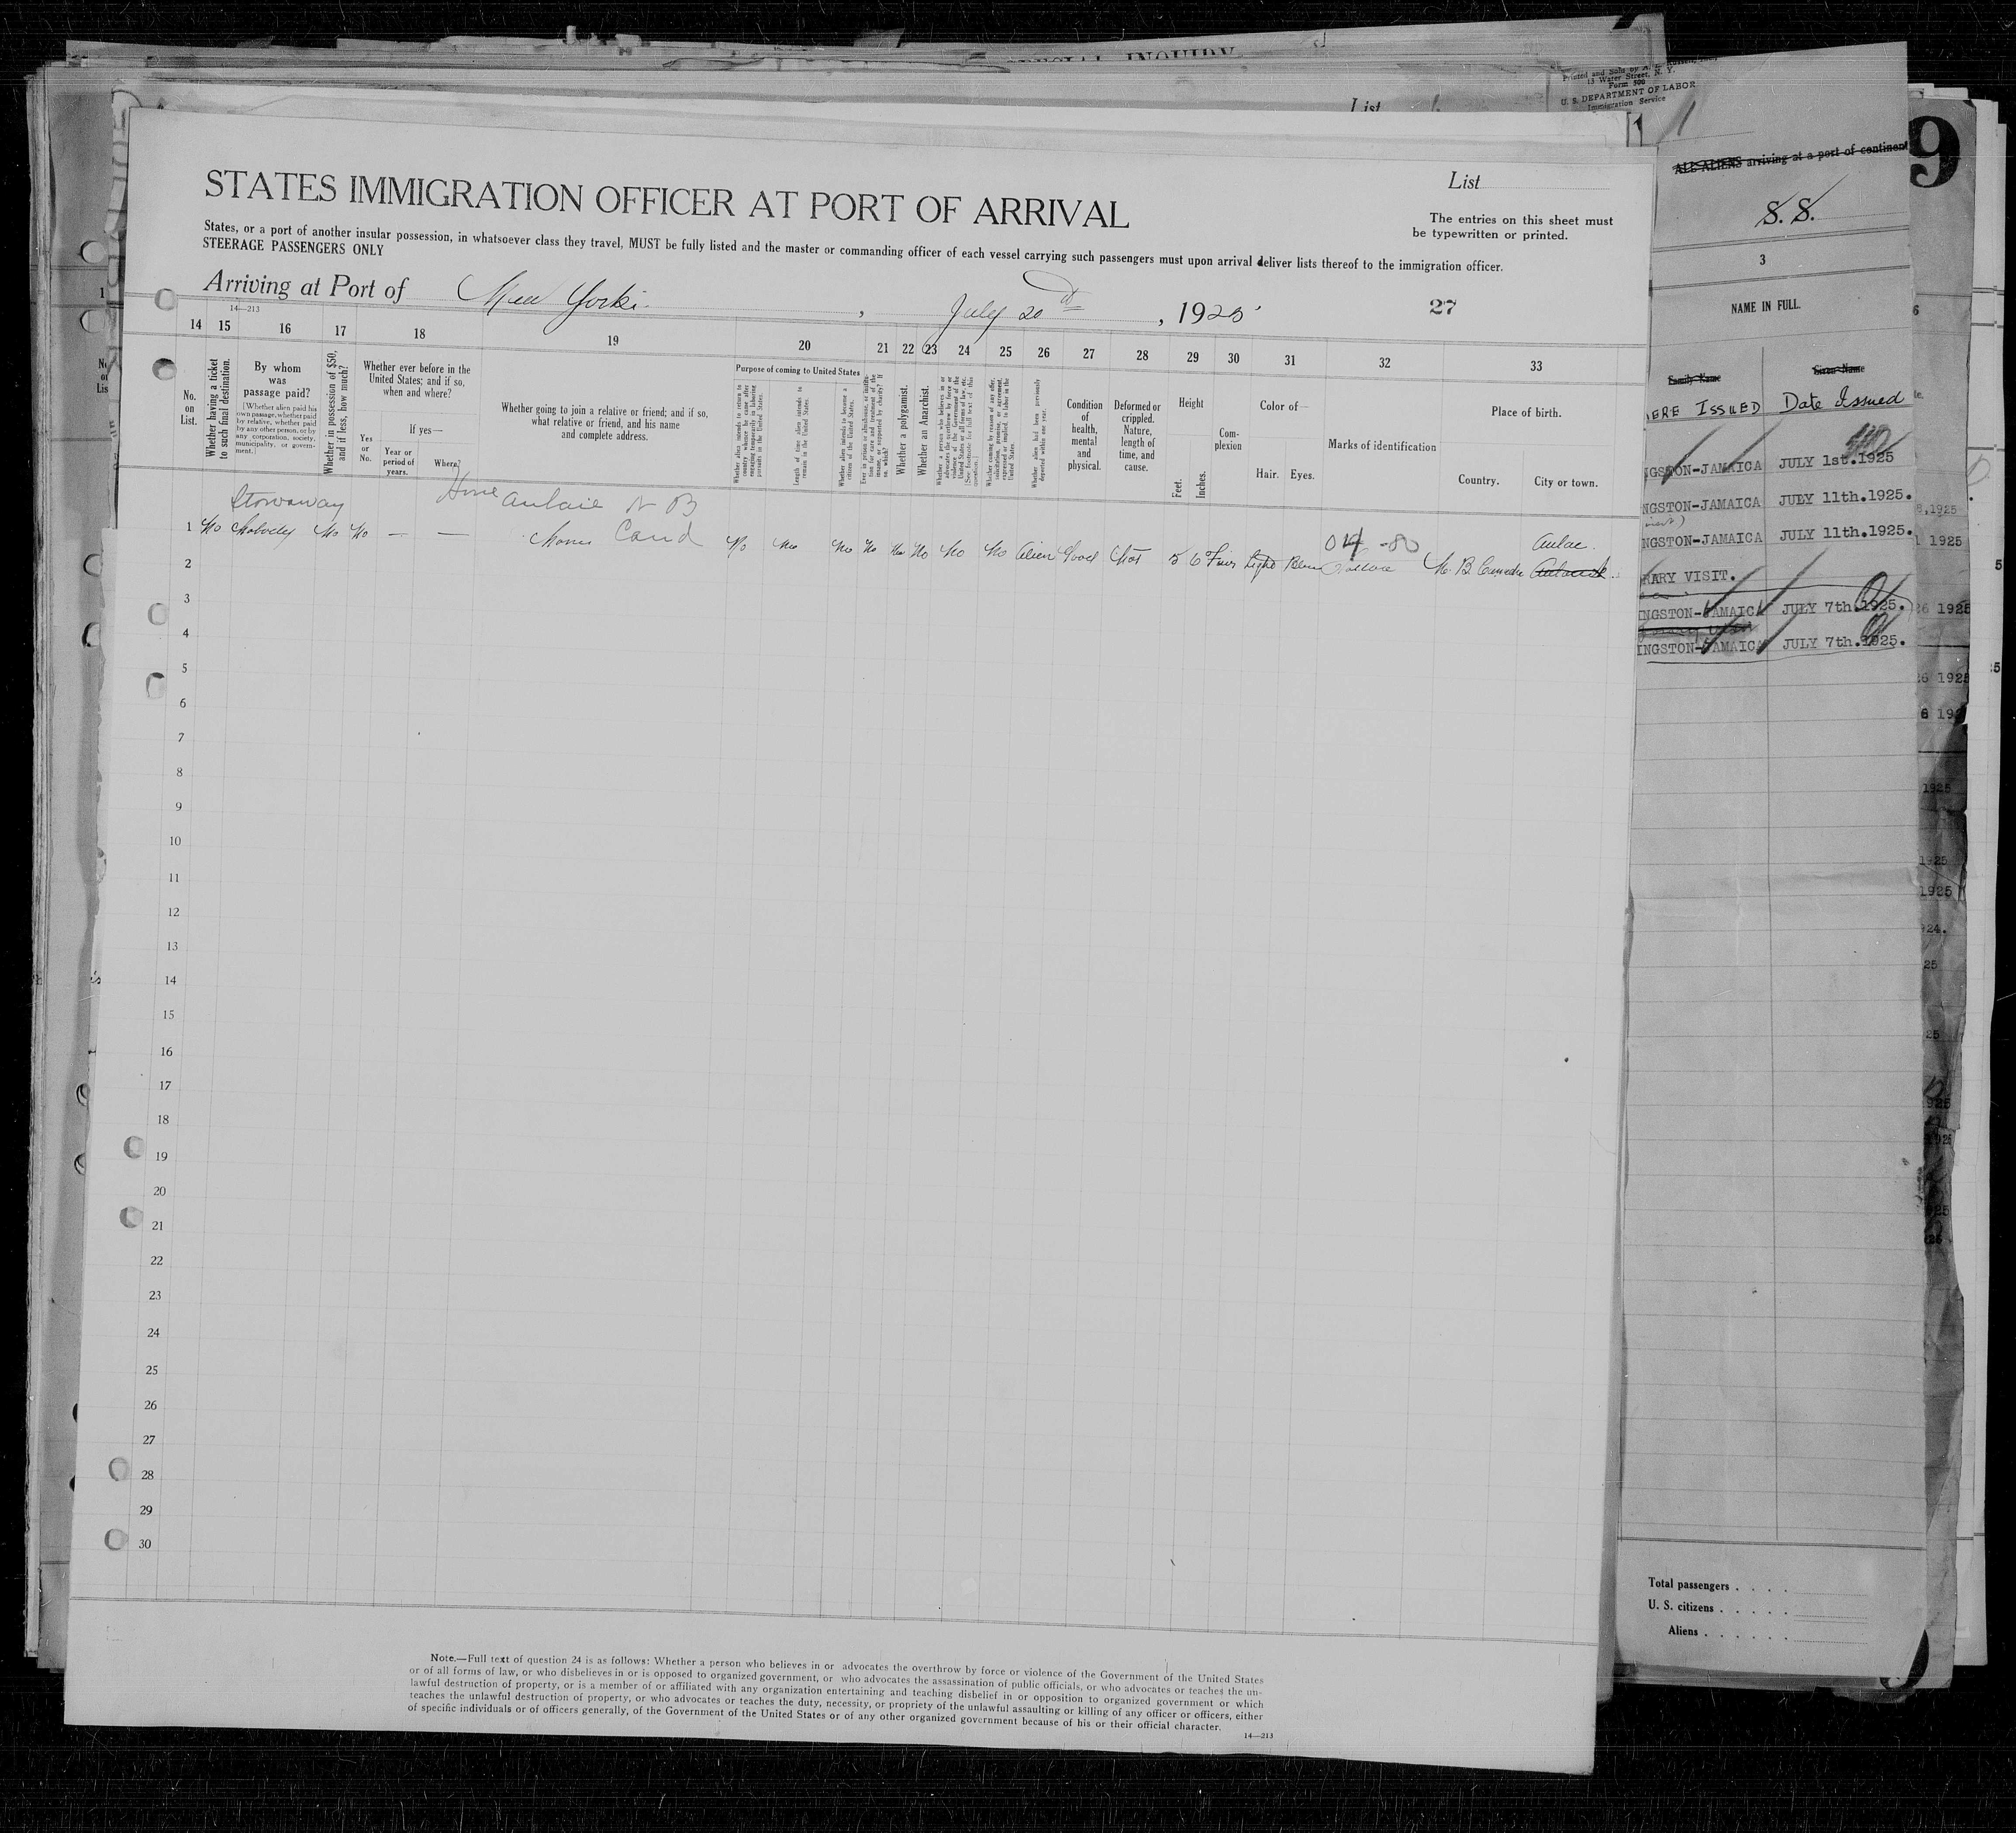 SPECIAL INQUIRY
List
Printed and Sold by
13 Water Street, N. Y.
Form 500
U. S. DEPARTMENT OF LABOR
Immigration Service
9
ALL ALIENS arriving at a port of continent
S. S.
3
NAME IN FULL.
Family Name Given Name
ERE ISSUED Date Issued
NGSTON-JAMAICA JULY 1st.1925
NGSTON-JAMAICA JULY 11th.1925.
NGSTON-JAMAICA JULY 11th.1925.
RARY VISIT.
NGSTON-JAMAICA JULY 7th.1925.
INGSTON-JAMAICA JULY 7th.1925.
Total passengers
U. S. citizens
Aliens
STATES IMMIGRATION OFFICER AT PORT OF ARRIVAL
List
The entries on this sheet must
be typewritten or printed.
States, or a port of another insular possession, in whatsoever class they travel, MUST be fully listed and the master or commanding officer of each vessel carrying such passengers must upon arrival deliver lists thereof to the immigration officer.
STEERAGE PASSENGERS ONLY
Arriving at Port of New York , July 20 , 1925 27
14—213
14 15 16 17 18 19 20 21 22 23 24 25 26 27 28 29 30 31 32 33
No. on List.
Whether having a ticket to such final destination.
By whom was passage paid?
[Whether alien paid his own passage, whether paid by relative, whether paid by any other person, or by any corporation, society, municipality, or government.]
Whether in possession of $50, and if less, how much?
Whether ever before in the United States; and if so, when and where?
If yes—
Yes or No.
Year or period of years.
Where?
Whether going to join a relative or friend; and if so, what relative or friend, and his name and complete address.
Purpose of coming to United States
Whether alien intends to return to country whence he came after engaging temporarily in laboring pursuits in the United States.
Length of time alien intends to remain in the United States.
Whether alien intends to become a citizen of the United States.
Ever in prison or almshouse, or institution for care and treatment of the insane, or supported by charity? If so, which?
Whether a polygamist.
Whether an Anarchist.
Whether a person who believes in or advocates the overthrow by force or violence of the Government of the United States or all forms of law, etc. (See footnote for full text of this question.)
Whether coming by reason of any offer, solicitation, promise, or agreement, expressed or implied, to labor in the United States.
Whether alien had been previously deported within one year.
Condition of health, mental and physical.
Deformed or crippled. Nature, length of time, and cause.
Height
Feet. Inches.
Complexion
Color of—
Hair. Eyes.
Marks of identification
Place of birth.
Country. City or town.
Stowaway Home Aulac N B
1 No Nobody No No — — Cand No No No No No No No No Good Not 5 6 Light N. B Canada Aulac.
2
3
4
5
6
7
8
9
10
11
12
13
14
15
16
17
18
19
20
21
22
23
24
25
26
27
28
29
30
Note.—Full text of question 24 is as follows: Whether a person who believes in or advocates the overthrow by force or violence of the Government of the United States
or of all forms of law, or who disbelieves in or is opposed to organized government, or who advocates the assassination of public officials, or who advocates or teaches the un-
lawful destruction of property, or is a member of or affiliated with any organization entertaining and teaching disbelief in or opposition to organized government or which
teaches the unlawful destruction of property, or who advocates or teaches the duty, necessity, or propriety of the unlawful assaulting or killing of any officer or officers, either
of specific individuals or of officers generally, of the Government of the United States or of any other organized government because of his or their official character.
14—213